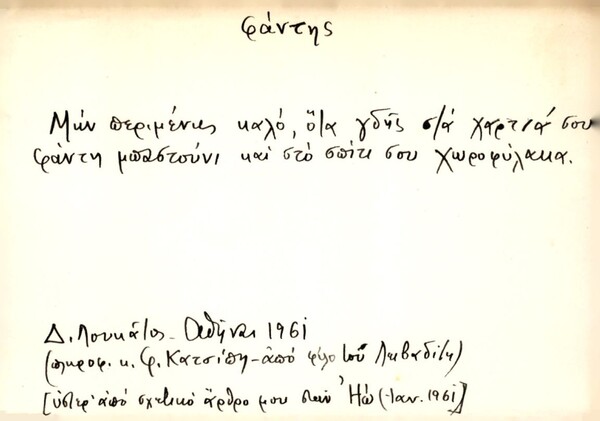 φάντης
Μήν περιμένεις καλό, ὅτα γδῆς στά χαρτιά σου
φάντη μπαστούνι καί στό σπίτι σου χωροφύλακα.
Δ. Λουκάτος - Ἀθῆναι 1961
(πληροφ. κ. Φ. Κατσίπη - ἀπό φίλο του Λιβαδίτη)
[ὑστερ' ἀπό σχετικό ἄρθρο μου στήν Ἠῶ (-Ιαν. 1961)]